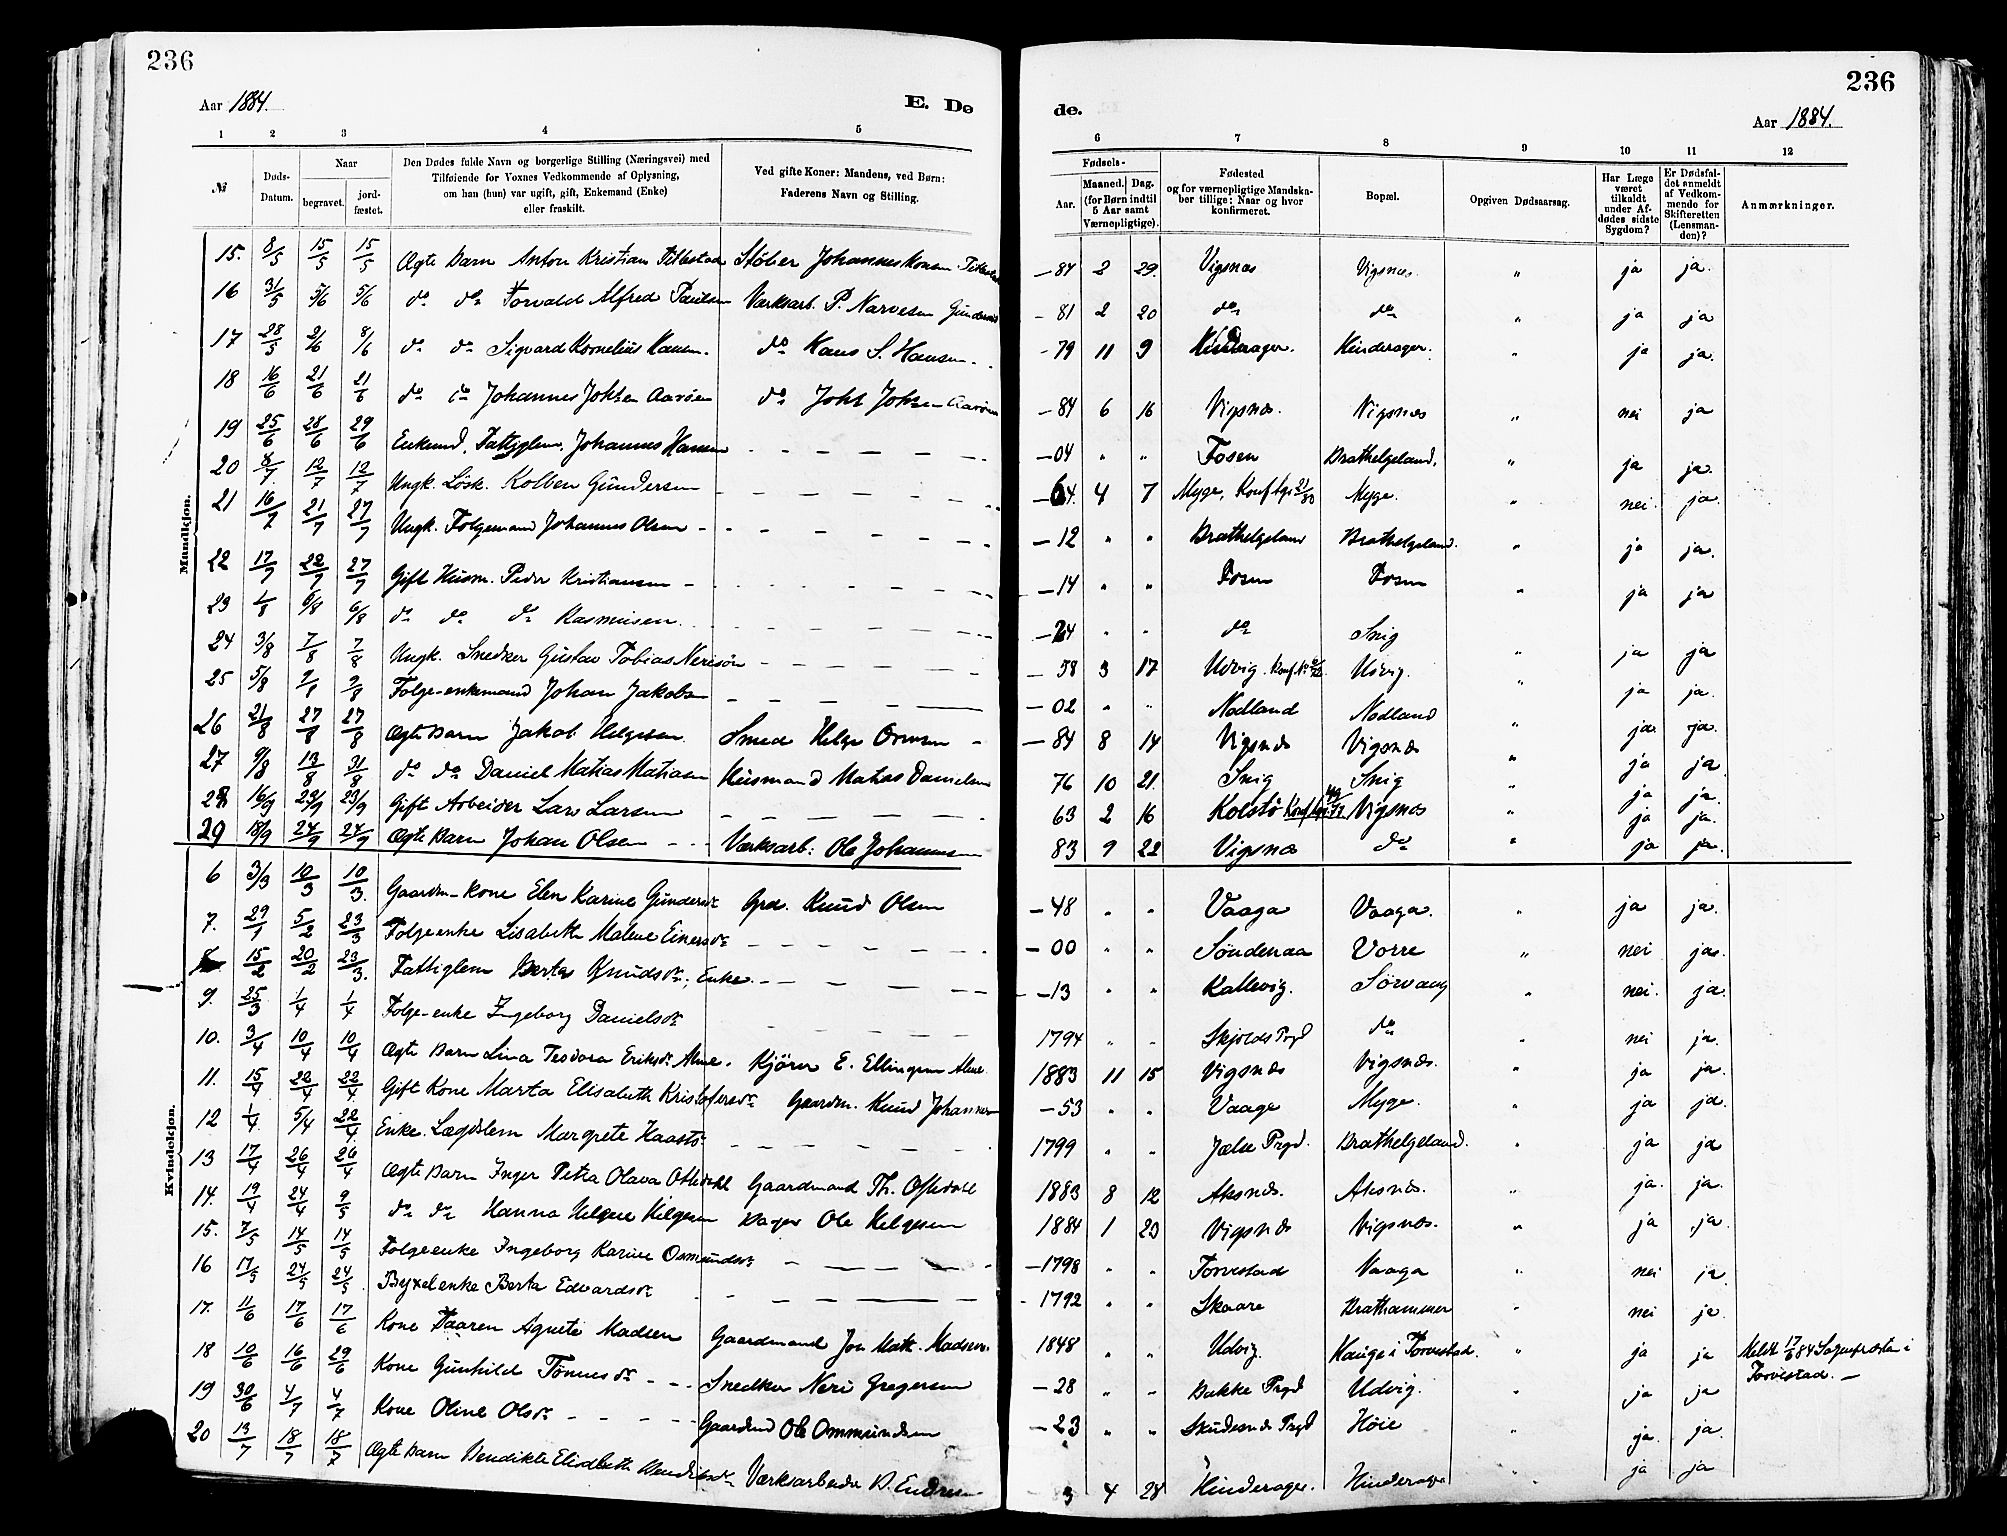 236
236
Aar 1884.
E. Dø
de.
Aar 1884.
1 2 3 4 5 6 7 8 9 10 11 12
№
Døds-Datum.
Naar
begravet.
jord-fæstet.
Den Dødes fulde Navn og borgerlige Stilling (Næringsvei) med
Tilføiende for Voxnes Vedkommende af Oplysning,
om han (hun) var ugift, gift, Enkemand (Enke)
eller fraskilt.
Ved gifte Koner: Mandens, ved Børn:
Faderens Navn og Stilling.
Fødsels-
Aar.
Maaned. Dag.
(for Børn indtil
5 Aar samt
Værnepligtige).
Fødested
og for værnepligtige Mandska-
ber tillige: Naar og hvor
konfirmeret.
Bopæl.
Opgiven Dødsaarsag.
Har Læge
været
tilkaldt
under Af-
dødes sidste
Sygdom?
Er Dødsfal-
det anmeldt
af Vedkom-
mende for
Skifteretten
(Lensman-
den)?
Anmærkninger.
Mandkjøn.
15. 8/5 15/5 15/5 Ægte Barn Anton Kristian Støber Johannes -84 2 29. Vigsnæs Vigsnæs. " ja ja.
16 31/5 5/6 5/6 do do Torvald Alfred Paulsen Værksarb. P. Narvesen -81 2 20 do do " ja ja
17 28/5 2/6 8/6 do do Sigvard Kornelius Hansen. do Hans S. Hansen. -79 11 9 Hinderager. Hinderager. " ja ja.
18 16/6 21/6 21/6 do do Johannes Aarøen do Aarøen -84 6 16 Vigsnæs. Vigsnæs " nei ja
19 25/6 28/6 29/6 Enkemd. Fattiglem. Johannes Hansen -04 " " Fosen Brathelgeland. " ja ja.
20 8/7 12/7 12/7 Ungk. Løsk. Kolben Gundersen -64. 4 7 Myge, Konf. Myge. " nei. ja.
21 16/7 21/7 27/7 Ungk. Folgemand Johannes Olsen -12 " " Brathelgeland Brathelgeland. " ja ja.
22 17/7 22/7 27/7 Gift Husm. Peder Kristiansen -14 " " Fosen Fosen " ja ja
23 1/8 6/8 6/8 do do do Rasmusen. -24 " " do Snig " ja ja
24 3/8 7/8 7/8 Ungk. Snedker Gustav Tobias Nerisøn -58 3 17 Udvig. Konf. Udvig. " ja ja.
25 5/8 9/8 9/8 Folge-enkemand Johan Jakobsen -02 " " Nodland Nodland " ja ja.
26 21/8 27/8 27/8 Ægte Barn Jakob Helgesen. Smed Helge -84 8 14 Vigsnæs Vigsnæs " ja ja
27 9/8 13/8 31/8 do do Daniel Matias Matiasen Husmand Matias Danielsen 76 10 21. Snig Snig " ja ja.
28 16/9 23/9 23/9 Gift Arbeider Lars Larsen 63 2 16 Kolstø Konf. Vigsnæs " ja ja.
29 18/9 24/9 24/9 Ægte Barn Johan Olsen Værksarb: Ole Johannesen 83 9 22 Vigsnæs do " ja ja.
Kvindekjøn.
6 3/3 10/3 10/3. Gaardm-kone Elen Karine Gundersdr Grd. Knud Olsen -48 " " Vaaga Vaaga. " ja ja.
7. 29/1 5/2 23/3 Folgeenke Lisabeth Malene Einersdr -00 " " Søndenaa Vorre " nei ja.
15/2 20/2 23/3. Fattiglem Berta Knudsdr. Enke. -13 " " Kallevig. Sørvaag " nei. ja.
9. 25/3 1/4 1/4 Folge-enke Ingeborg Danielsdr 1794 " " Skjolds Prgd do " nei ja.
10. 3/4 10/4 10/4 Ægte Barn Lina Teodora Eriksdr Kjører E. Ellingsen 1883 11 15 Vigsnæs Vigsnæs. " ja ja.
11. 15/4 22/4 22/4 Gift Kone Marta Elisabeth Kristofersdr Gaardm. Knud Johannes -53 " " Vaage Myge. " ja ja.
12 1/4. 5/4 22/4 Enke. Lægdslem Margrete 1799 " " Jælse Prgd. Brathelgeland. " ja ja
13 17/4 26/4 26/4 Ægte Barn Inger Petra Olava Oftedahl Gaardmand Th. Oftedahl 1883 8 12 Aksnæs. Aksnæs. " ja. ja.
14. 19/4 24/4 9/5 do do Hanna Helgesen Bager Ole Helgesen 1884 1 23 Vigsnæs Vigsnæs. " ja ja
15. 7/5 14/5 14/5 Folgeenke Ingeborg Karine Osmundsdr -1798 " " Torvestad Vaaga " nei ja
16 17/5 24/5 24/5. Byxelenke Berta Edvardsdr -1792 " " Skaare Brathammer " nei ja.
17. 11/6 17/6 17/6 Kone Taaren Agnete Madsen Gaardmand Jon Math. Madsen. 1848 " " Udvig. Hauge i Torvestad. " ja ja Meldt 17/6 84 Sognepræsten i
Torvestad. —
18 10/6 16/6 29/6 Kone Gunhild Tønnesdr Snedker Neri Gregersen -28 " " Bakke Prgd Udvig. " ja ja
19 30/6 4/7 4/7 Kone Oline Olsdr Gaardmd Ole Ommundsen -23 " " Skudesnæs Prgd Høie " ja. ja.
20 13/7 18/7 18/7 Ægte Barn Bendikte Elisabeth Værksarbeider B. Endresen 3 4 28 Hinderager. Hinderager " ja ja